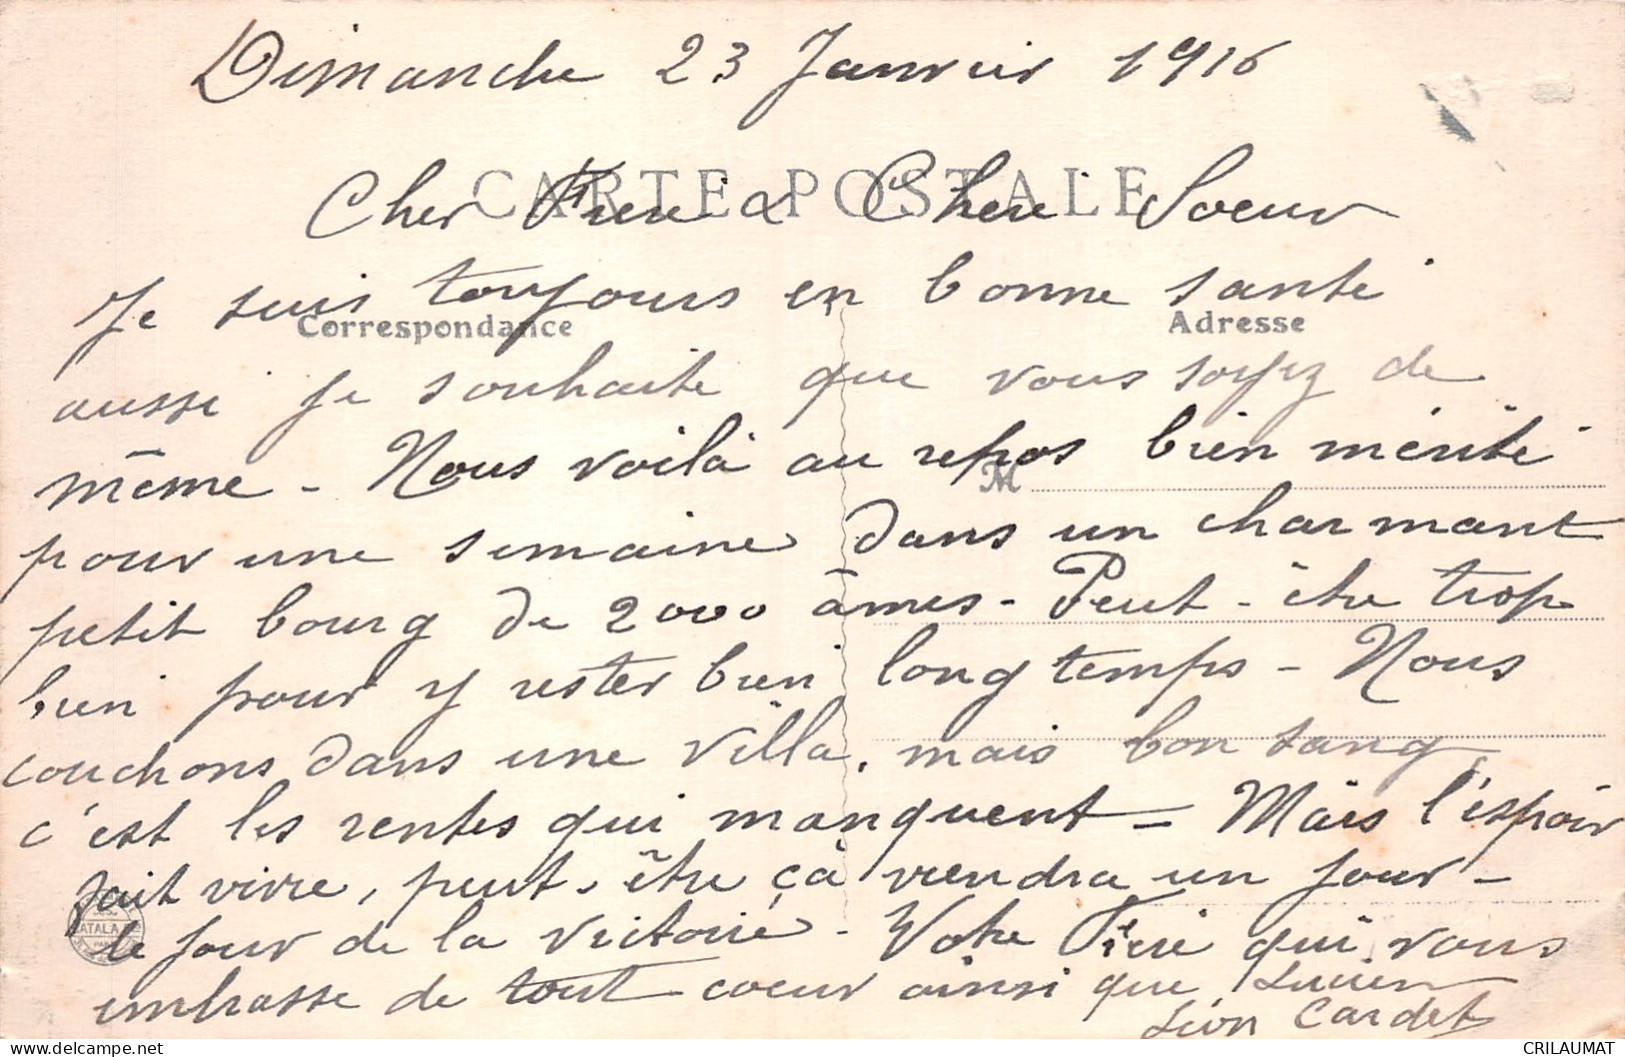 Dimanche 23 Janvier 1916
CARTE POSTALE
Cher Frère & Chère Soeur
Je suis toujours en bonne santé
Correspondance Adresse
aussi je souhaite que vous soyez de
même - Nous voilà au repos bien mérité
M
pour une semaine dans un charmant
petit bourg de 2000 âmes - Peut-être trop
bien pour y rester bien longtemps - Nous
couchons dans une villa, mais bon sang,
c'est les rentes qui manquent - Mais l'espoir
fait vivre, peut-être çà viendra un jour -
le jour de la victoire - Votre Frère qui vous
embrasse de tout coeur ainsi que Lucien
Léon Cardet
CRILAUMAT